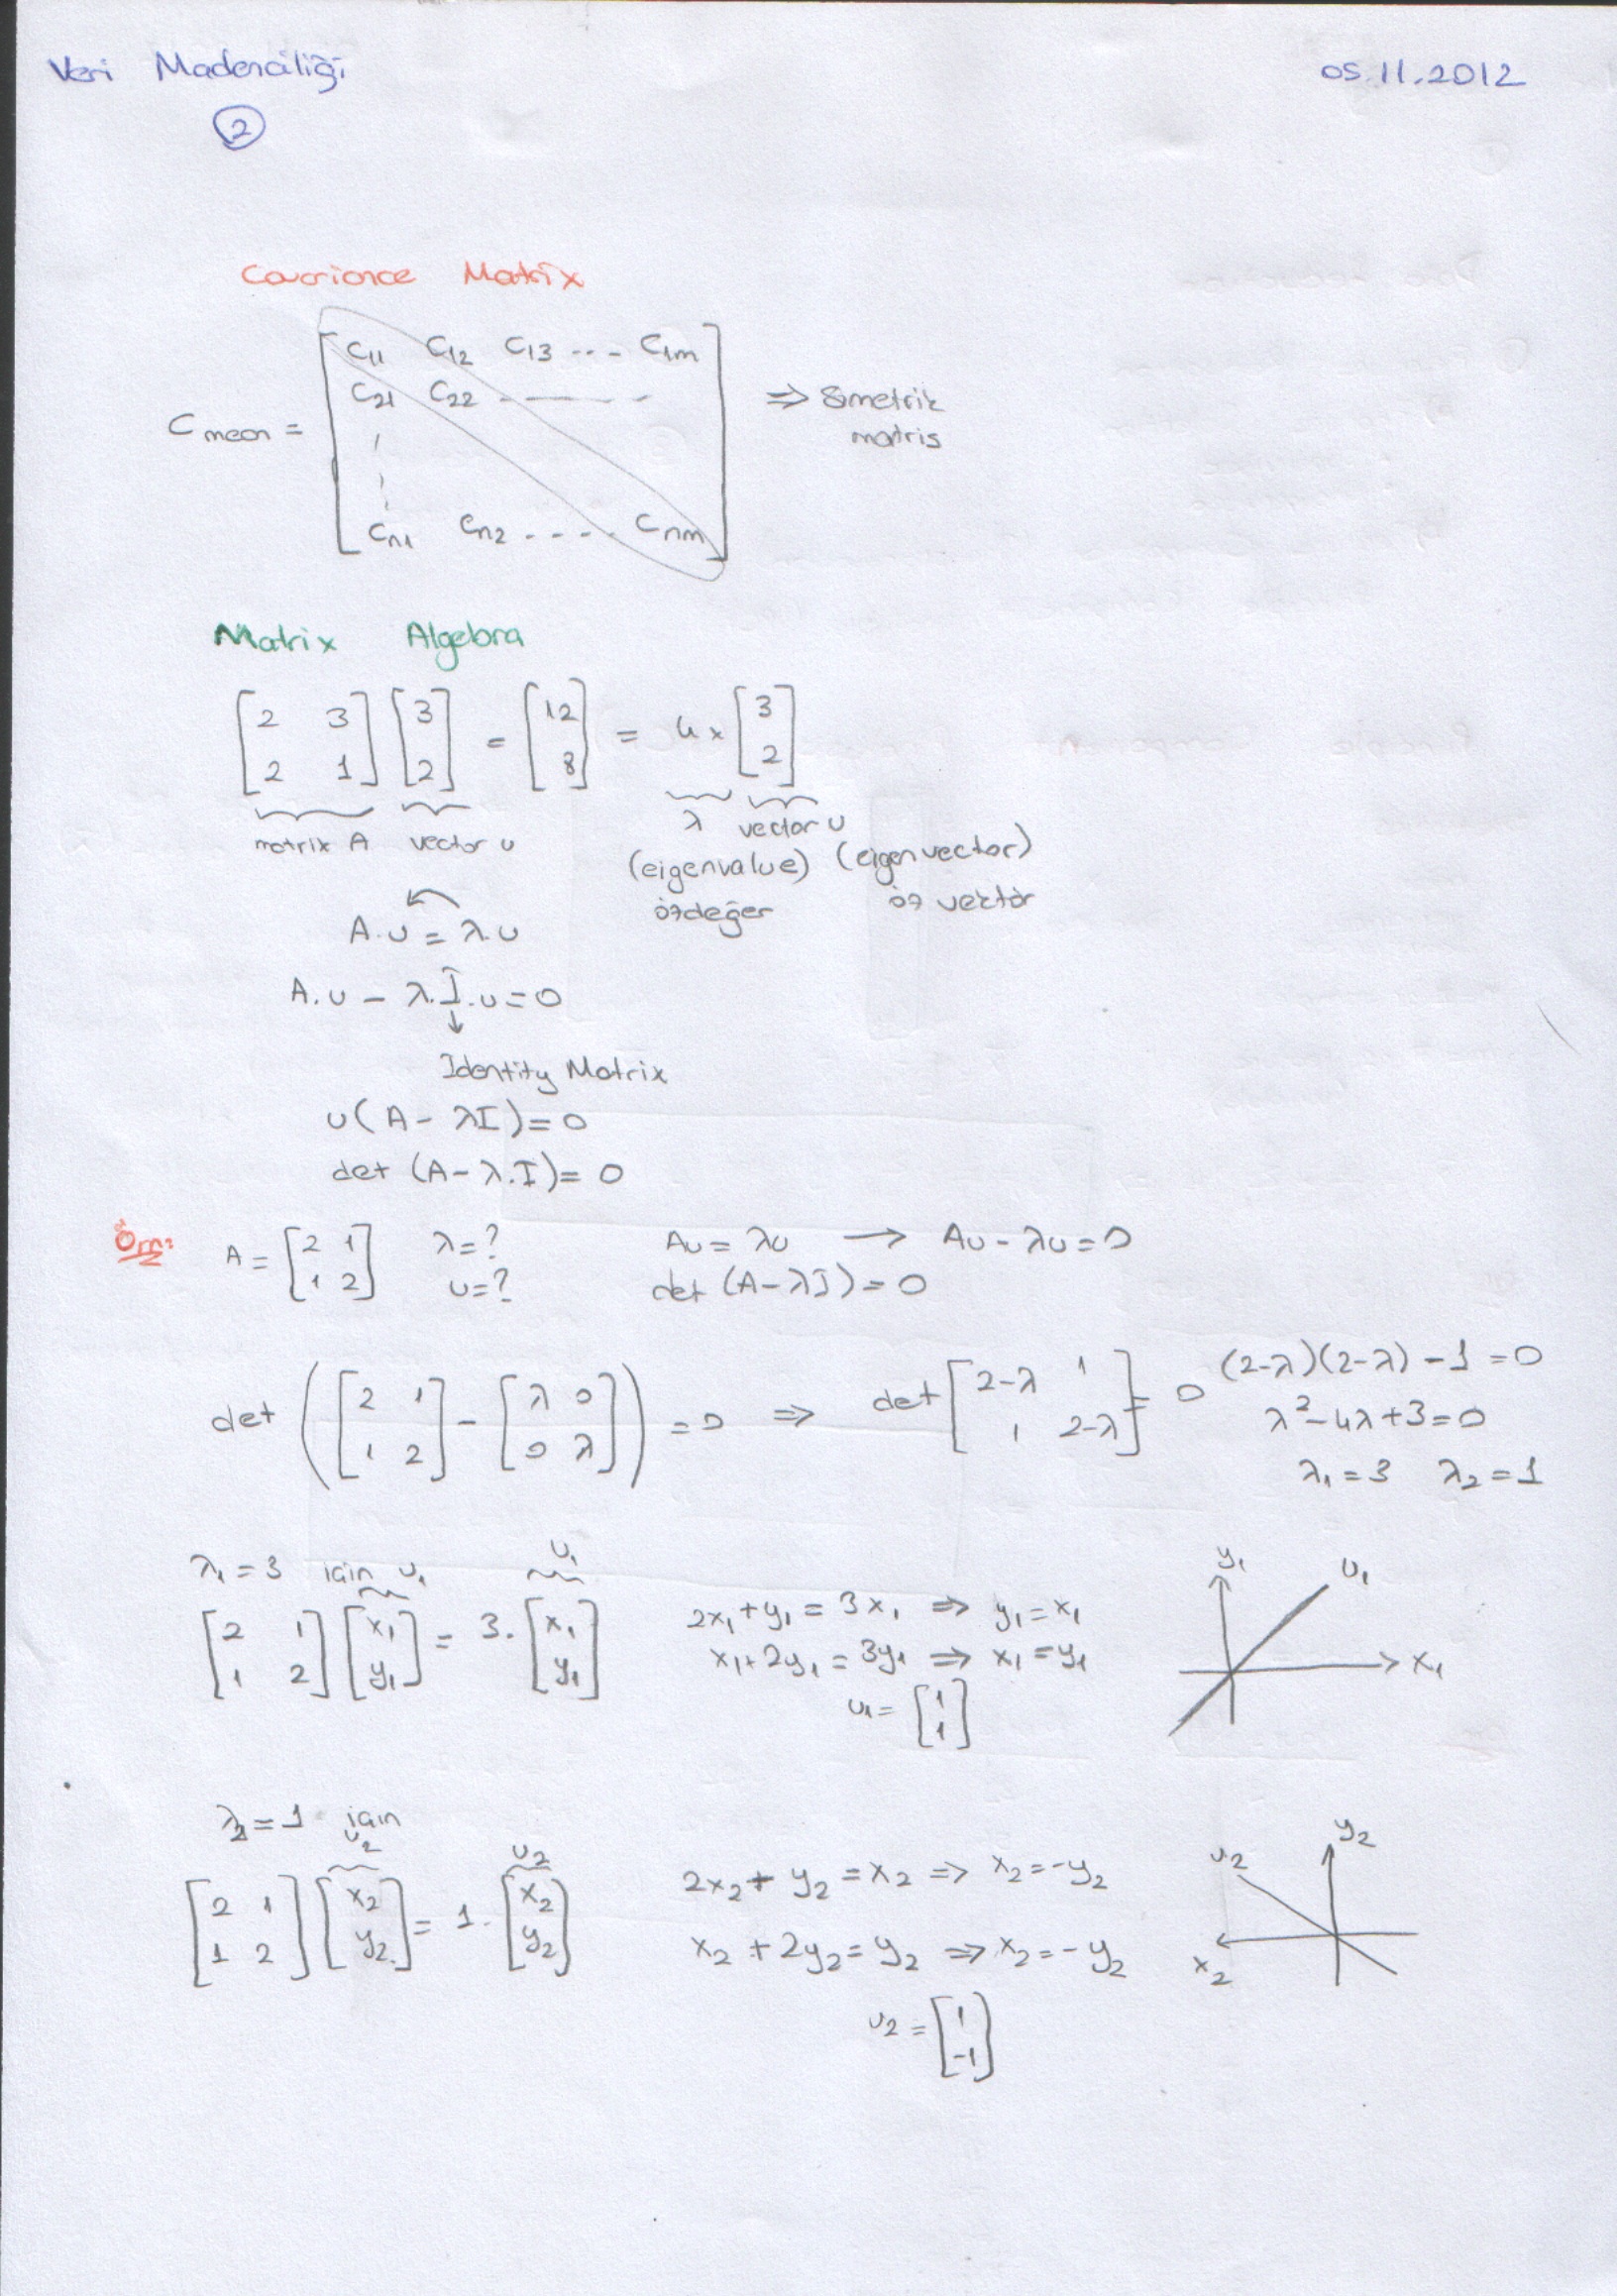 Veri Madenciliği 05.11.2012
2
Covarience Matrix
C mean = [ C11 C12 C13 ... C1m
C21 C22 - - - -
Cn1 Cn2 . . . . Cnm ] ⇒ Simetrik
matris
Matrix Algebra
[ 2 3 ; 2 1 ] [ 3 ; 2 ] = [ 12 ; 8 ] = 4 x [ 3 ; 2 ]
matrix A vector u λ vector u
(eigenvalue) (eigenvector)
özdeğer öz vektör
A.u = λ.u
A.u - λ.I.u = 0
↓
Identity Matrix
u(A - λI) = 0
det (A - λ.I) = 0
Örn: A = [ 2 1 ; 1 2 ] λ=? Au = λu → Au - λu = 0
u=? det (A - λI) = 0
det ( [ 2 1 ; 1 2 ] - [ λ 0 ; 0 λ ] ) = 0 ⇒ det [ 2-λ 1 ; 1 2-λ ] = 0
(2-λ)(2-λ) - 1 = 0
λ² - 4λ + 3 = 0
λ1 = 3 λ2 = 1
λ1 = 3 için u1 u1
[ 2 1 ; 1 2 ] [ x1 ; y1 ] = 3. [ x1 ; y1 ]
2x1 + y1 = 3x1 ⇒ y1 = x1
x1 + 2y1 = 3y1 ⇒ x1 = y1
u1 = [ 1 ; 1 ]
y1 u1
x1
λ2 = 1 için
u2 u2
[ 2 1 ; 1 2 ] [ x2 ; y2 ] = 1. [ x2 ; y2 ]
2x2 + y2 = x2 ⇒ x2 = -y2
x2 + 2y2 = y2 ⇒ x2 = -y2
u2 = [ 1 ; -1 ]
u2 y2
x2